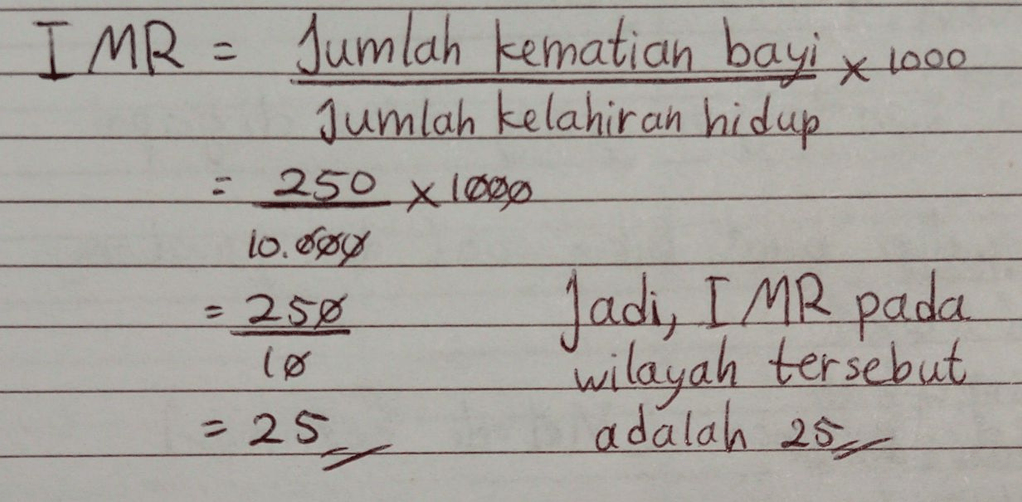 IMR = Jumlah kematian bayi × 1000
Jumlah kelahiran hidup
= 250 × 1000
10.000
= 250
10
= 25
Jadi, IMR pada
wilayah tersebut
adalah 25